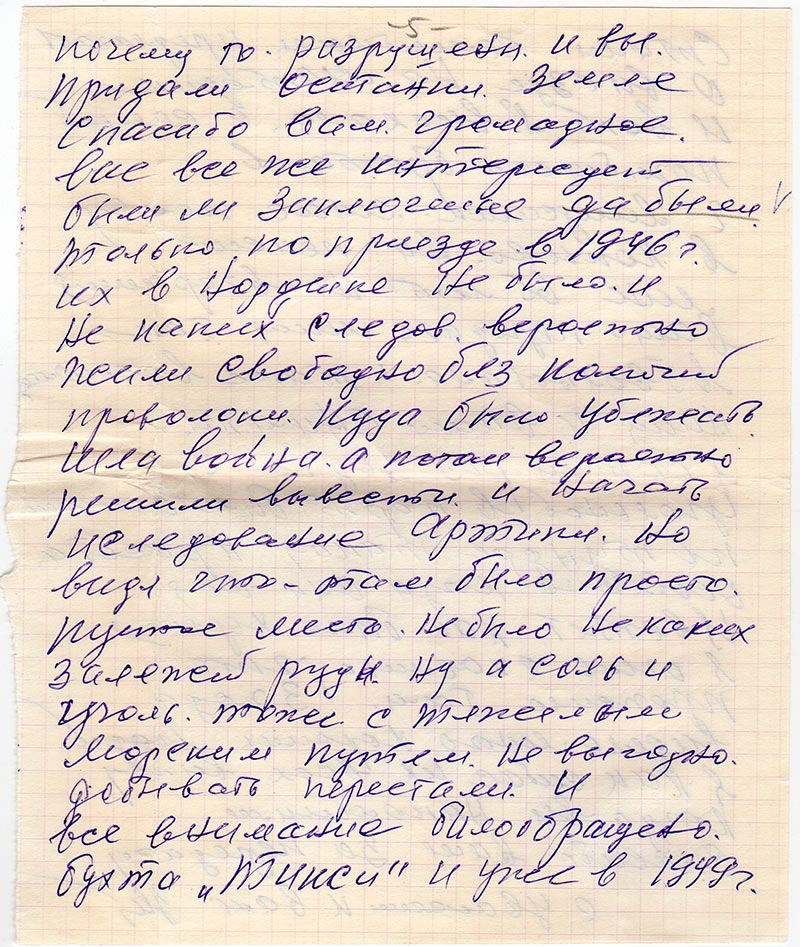 -5-
почему то. разрушен. и вы.
придали останки. земле
Спасибо вам. громадное.
вас все же интересует
были ли заключеные да были. V
только по приезде в 1946 г.
их в Нордвике не было. и
не каких следов. вероятно
жили свободно без колючей
проволоки. Куда было убежать.
шла война. а потом вероятно
решили вывести. и начать
иследование Арктики. но
видя что-там было просто.
пустое место. не было не каких
залежей руды. ну а соль и
уголь. тоже с тяжелым
морским путем. не выгодно.
добывать перестали. и
все внимание было обращено.
бухта „Тикси" и уже в 1949 г.